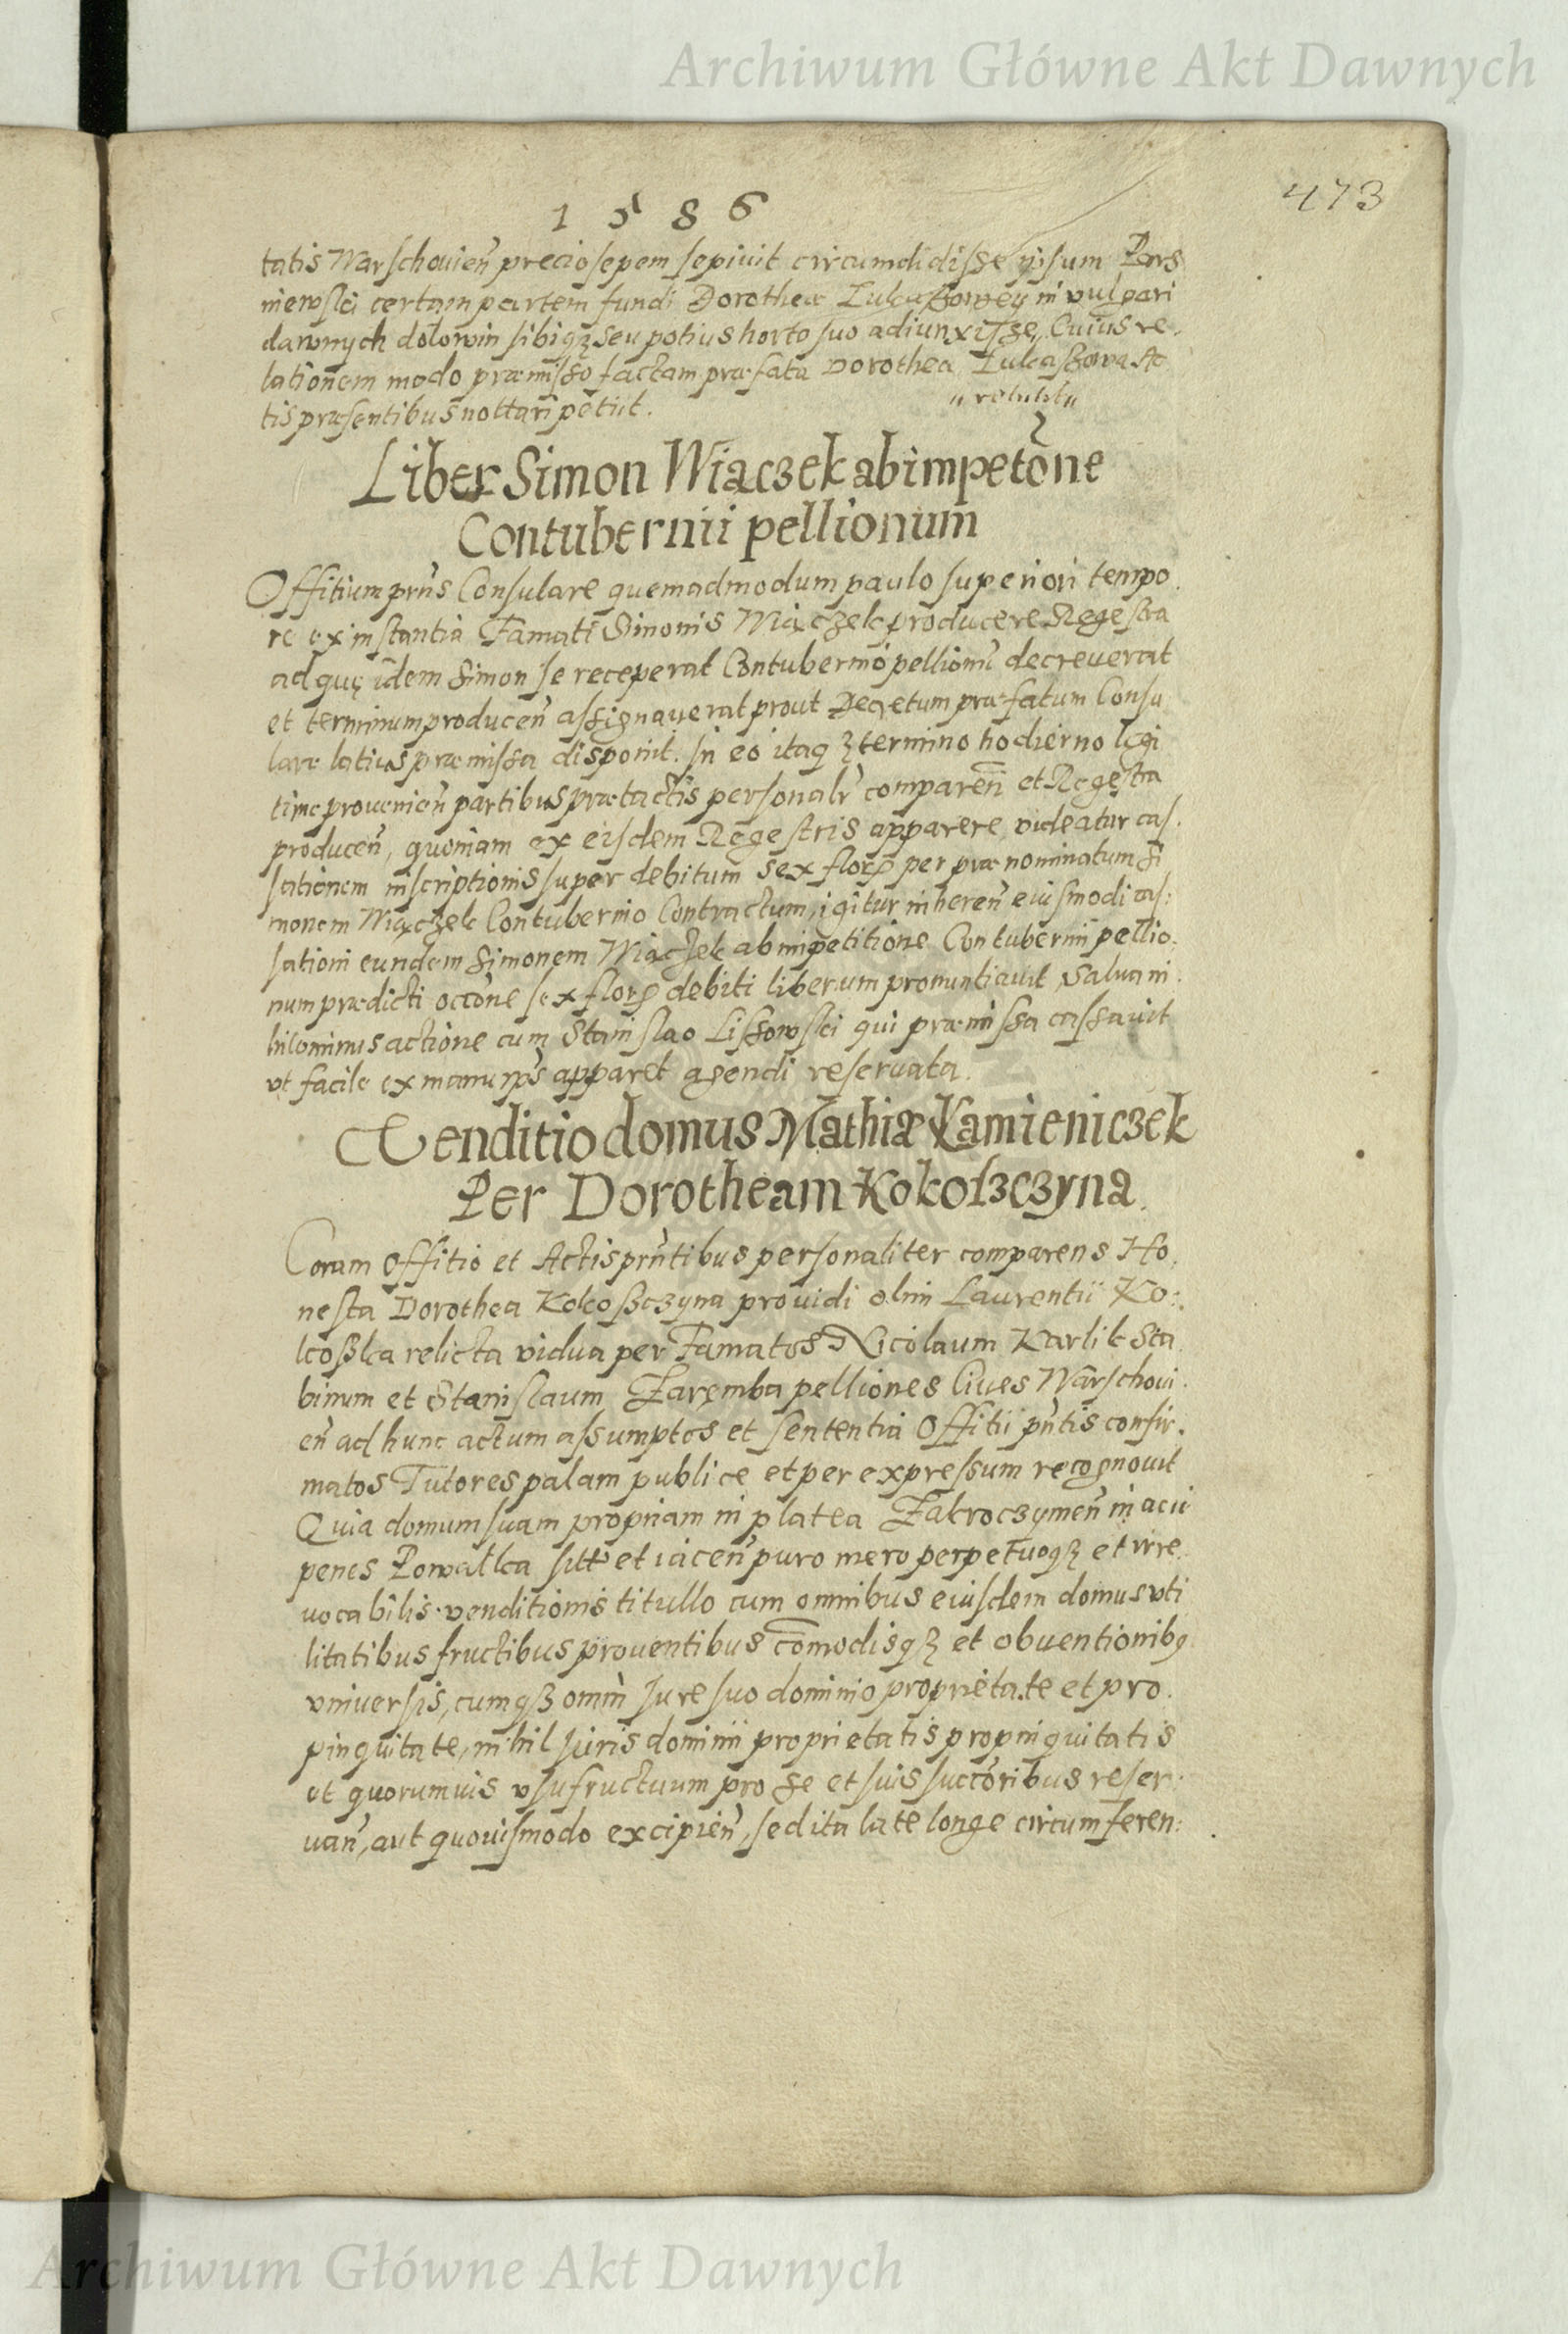 Archiwum Główne Akt Dawnych
473
1 5 8 6
tatis Warschovieñ precio sepem sepivit circumdidisse ipsum Pars
niewski certam partem fundi Dorotheæ Lukaßowey in vulgari
dawnych dolowin sibiqꝫ seu potius horto suo adiunxisse, Cuius re
lationem modo præmisso factam præfata Dorothea Lukaßowa Ac
„ retulit „
tis præsentibus nottari petiit.
Liber Simon Wiączek ab impetõne
Contubernii pellionum
Offitium prñs Consulare quemadmodum paulo superiori tempo
re ex instantia Famati Simonis Wiączek producere Regestra
ad quę idem Simon se receperat Contubernio pellionũ decreverat
et terminum produceñ assignaverat prout Decretum præfatum Consu
lare latius præmissa disponit. In eo itaqꝫ termino hodierno legi
time provenieñ partibus prætactis personalr̃ compareñ et Regestra
produceñ, quoniam ex eisdem Regestris apparere videatur cas,
sationem inscriptionis super debitum sex floꝝ per prænominatum Si
monem Wiączek Contubernio Contractum, igitur inhereñ eiusmodi cas:
sationi eundem Simonem Wiączek ab impetitione Contubernii pellio:
num prædicti occõne sex floꝝ debiti liberum pronuntiavit, Salva ni
hilominus actione cum Stanislao Lissowski qui præmissa cassavit
vt facile ex manu apparet agendi reservata.
Venditio domus Mathiæ Kamieniczek
Per Dorotheam Kokoszczyna.
Coram Offitio et Actis prñtibus personaliter comparens Ho,
nesta Dorothea Kokoßczyna providi olim Laurentii Ko:
koßka relicta vidua per Famatos Nicolaum Karlik Sta
binum et Stanislaum Zaremba pelliones Cives Warschovi
eñ ad hunc actum assumptos et sententia Offitii pñtis confir.
matos Tutores palam publice et per expressum recognovit
Quia domum suam propriam in platea Zakroczymeñ in acie
penes Powalka sittã et iaceñ puro mero perpetuoqꝫ et irre,
vocabilis venditionis titullo cum omnibus eiusdem domus vti
litatibus fructibus proventibus cõmodisqꝫ et obventionibꝫ
vniversis, cumqꝫ omni Jure suo dominio proprietate et pro
pinquitate, nihil juris dominii proprietatis propinquitatis
et quorumvis vsufructuum pro se et suis succõribus reser:
vañ, aut quovismodo excipieñ, sed ita late longe circumferen:
Archiwum Główne Akt Dawnych